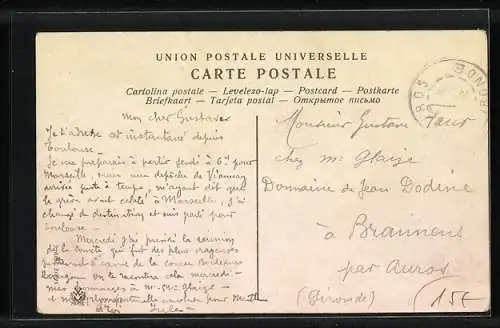 UNION POSTALE UNIVERSELLE
CARTE POSTALE
Cartolina postale — Levelezo-lap — Postcard — Postkarte
Briefkaart — Tarjeta postal — Открытое письмо
Mon cher Gustave
Je t'adresse cet instantané depuis
Toulouse —
Je me préparais à partir jeudi à 6h pour
Marseille, mais une dépêche de
arrivée juste à temps, m'ayant dit que
la grève avait éclaté à Marseille, j'ai
changé de destination et suis parti pour
Toulouse —
Mercredi j'ai présidé la réunion
de la société qui fut des plus orageuses
de la course Bordeaux
on te racontera cela mercredi —
hommages à Mr & Mme Glaize
et pour
Jules
Monsieur Gustave Faux
chez Mr Glaize
Domaine de Jean Dodine
à Brannens
par Auros
(Gironde)
15F